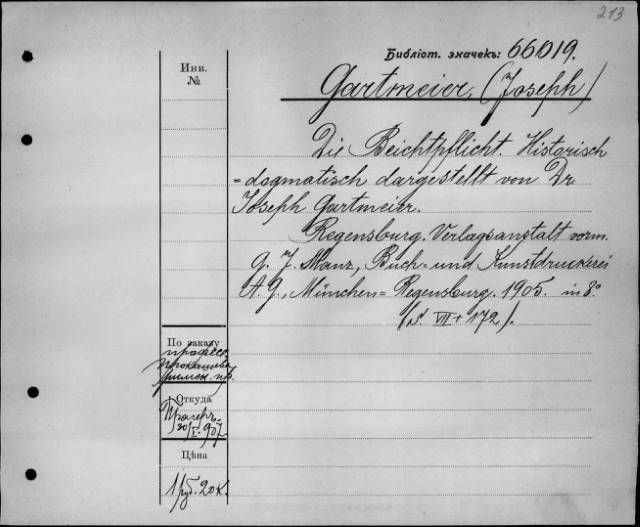 213
Библіот. значекъ: 66019.
Инв.
№
Gartmeier, (Joseph)
Die Beichtpflicht. Historisch
=dogmatisch dargestellt von Dr
Joseph Gartmeier.
Regensburg. Verlagsanstalt vorm.
G. J. Manz, Buch= und Kunstdruckerei
A. G., München=Regensburg. 1905. in 8°
(S. VII + 172).
По заказу
Откуда
30/I. 907
Цѣна
1 руб. 20 к.